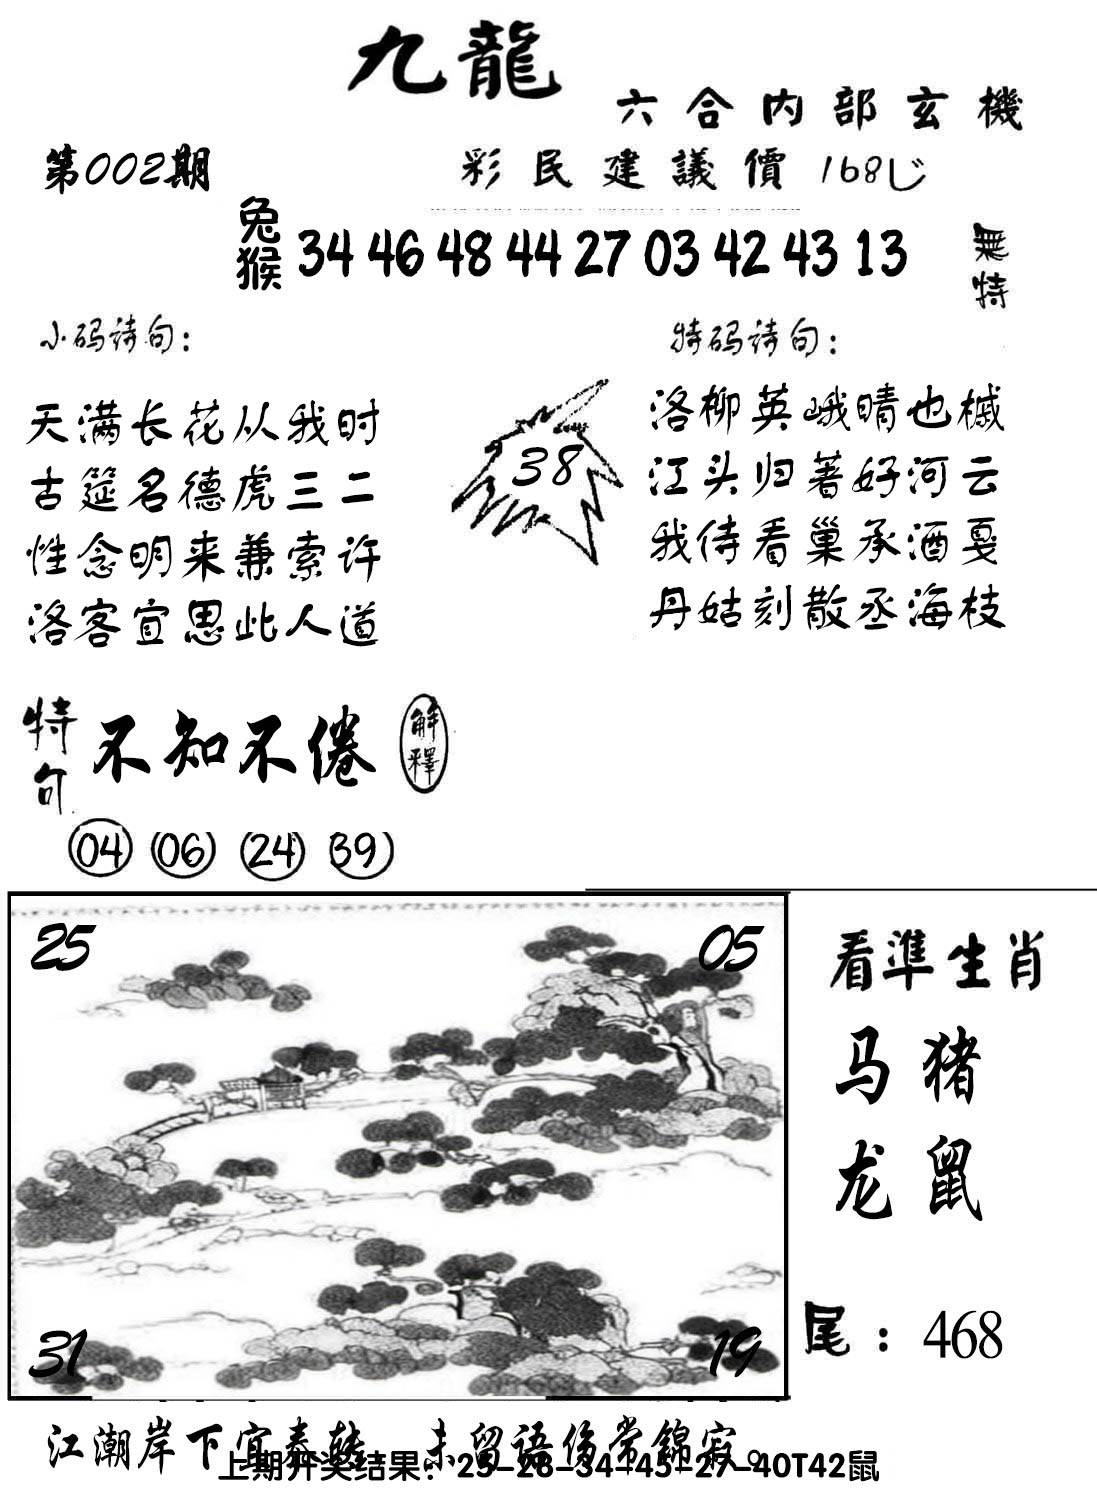 九龍
六合内部玄機
第002期
彩民建議價 168
兔猴 34 46 48 44 27 03 42 43 13
無特
小码诗句：
特码诗句：
天满长花从我时
古筵名德虎三二
性念明来兼索许
洛客宜思此人道
38
洛柳英峨晴也槭
江头归著好河云
我侍看巢承酒戛
丹姑刻散丞海枝
特句
不知不倦
解釋
04 06 24 39
25
05
31
19
看準生肖
马猪
龙鼠
尾：468
江潮岸下宜春转 未留语伤常錦寂。
上期开奖结果：25-28-34-45-27-40T42鼠